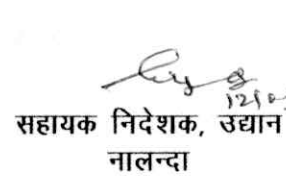 सहायक निदेशक, उद्यान
नालन्दा